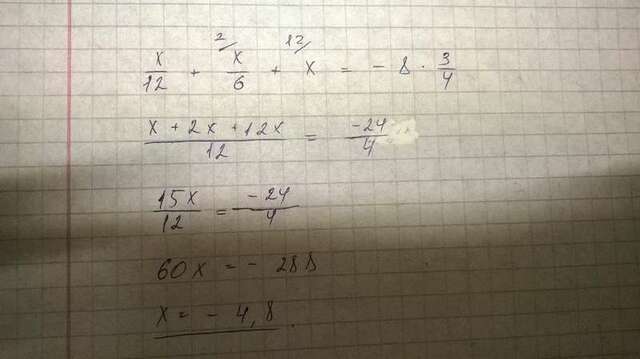 x/12 + 2/ x/6 + 12/ x = - 8 · 3/4
x + 2x + 12x / 12 = -24/4
15x/12 = -24/4
60x = - 288
x = - 4,8.